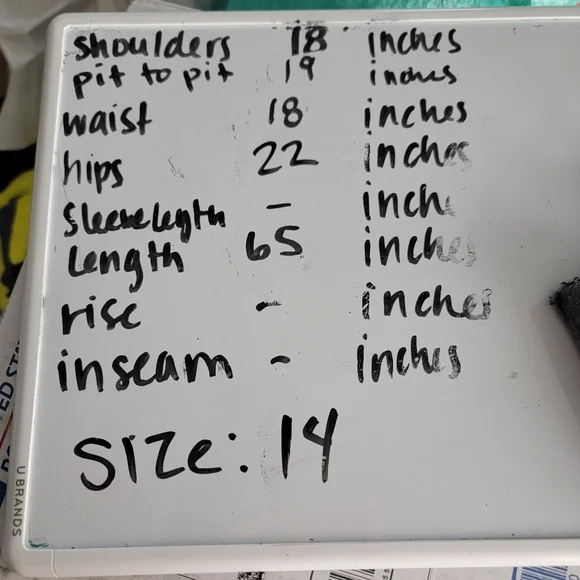 shoulders 18 inches
pit to pit 19 inches
waist 18 inches
hips 22 inches
sleevelength - inch
length 65 inches
rise - inches
inseam - inches
size: 14
U BRANDS